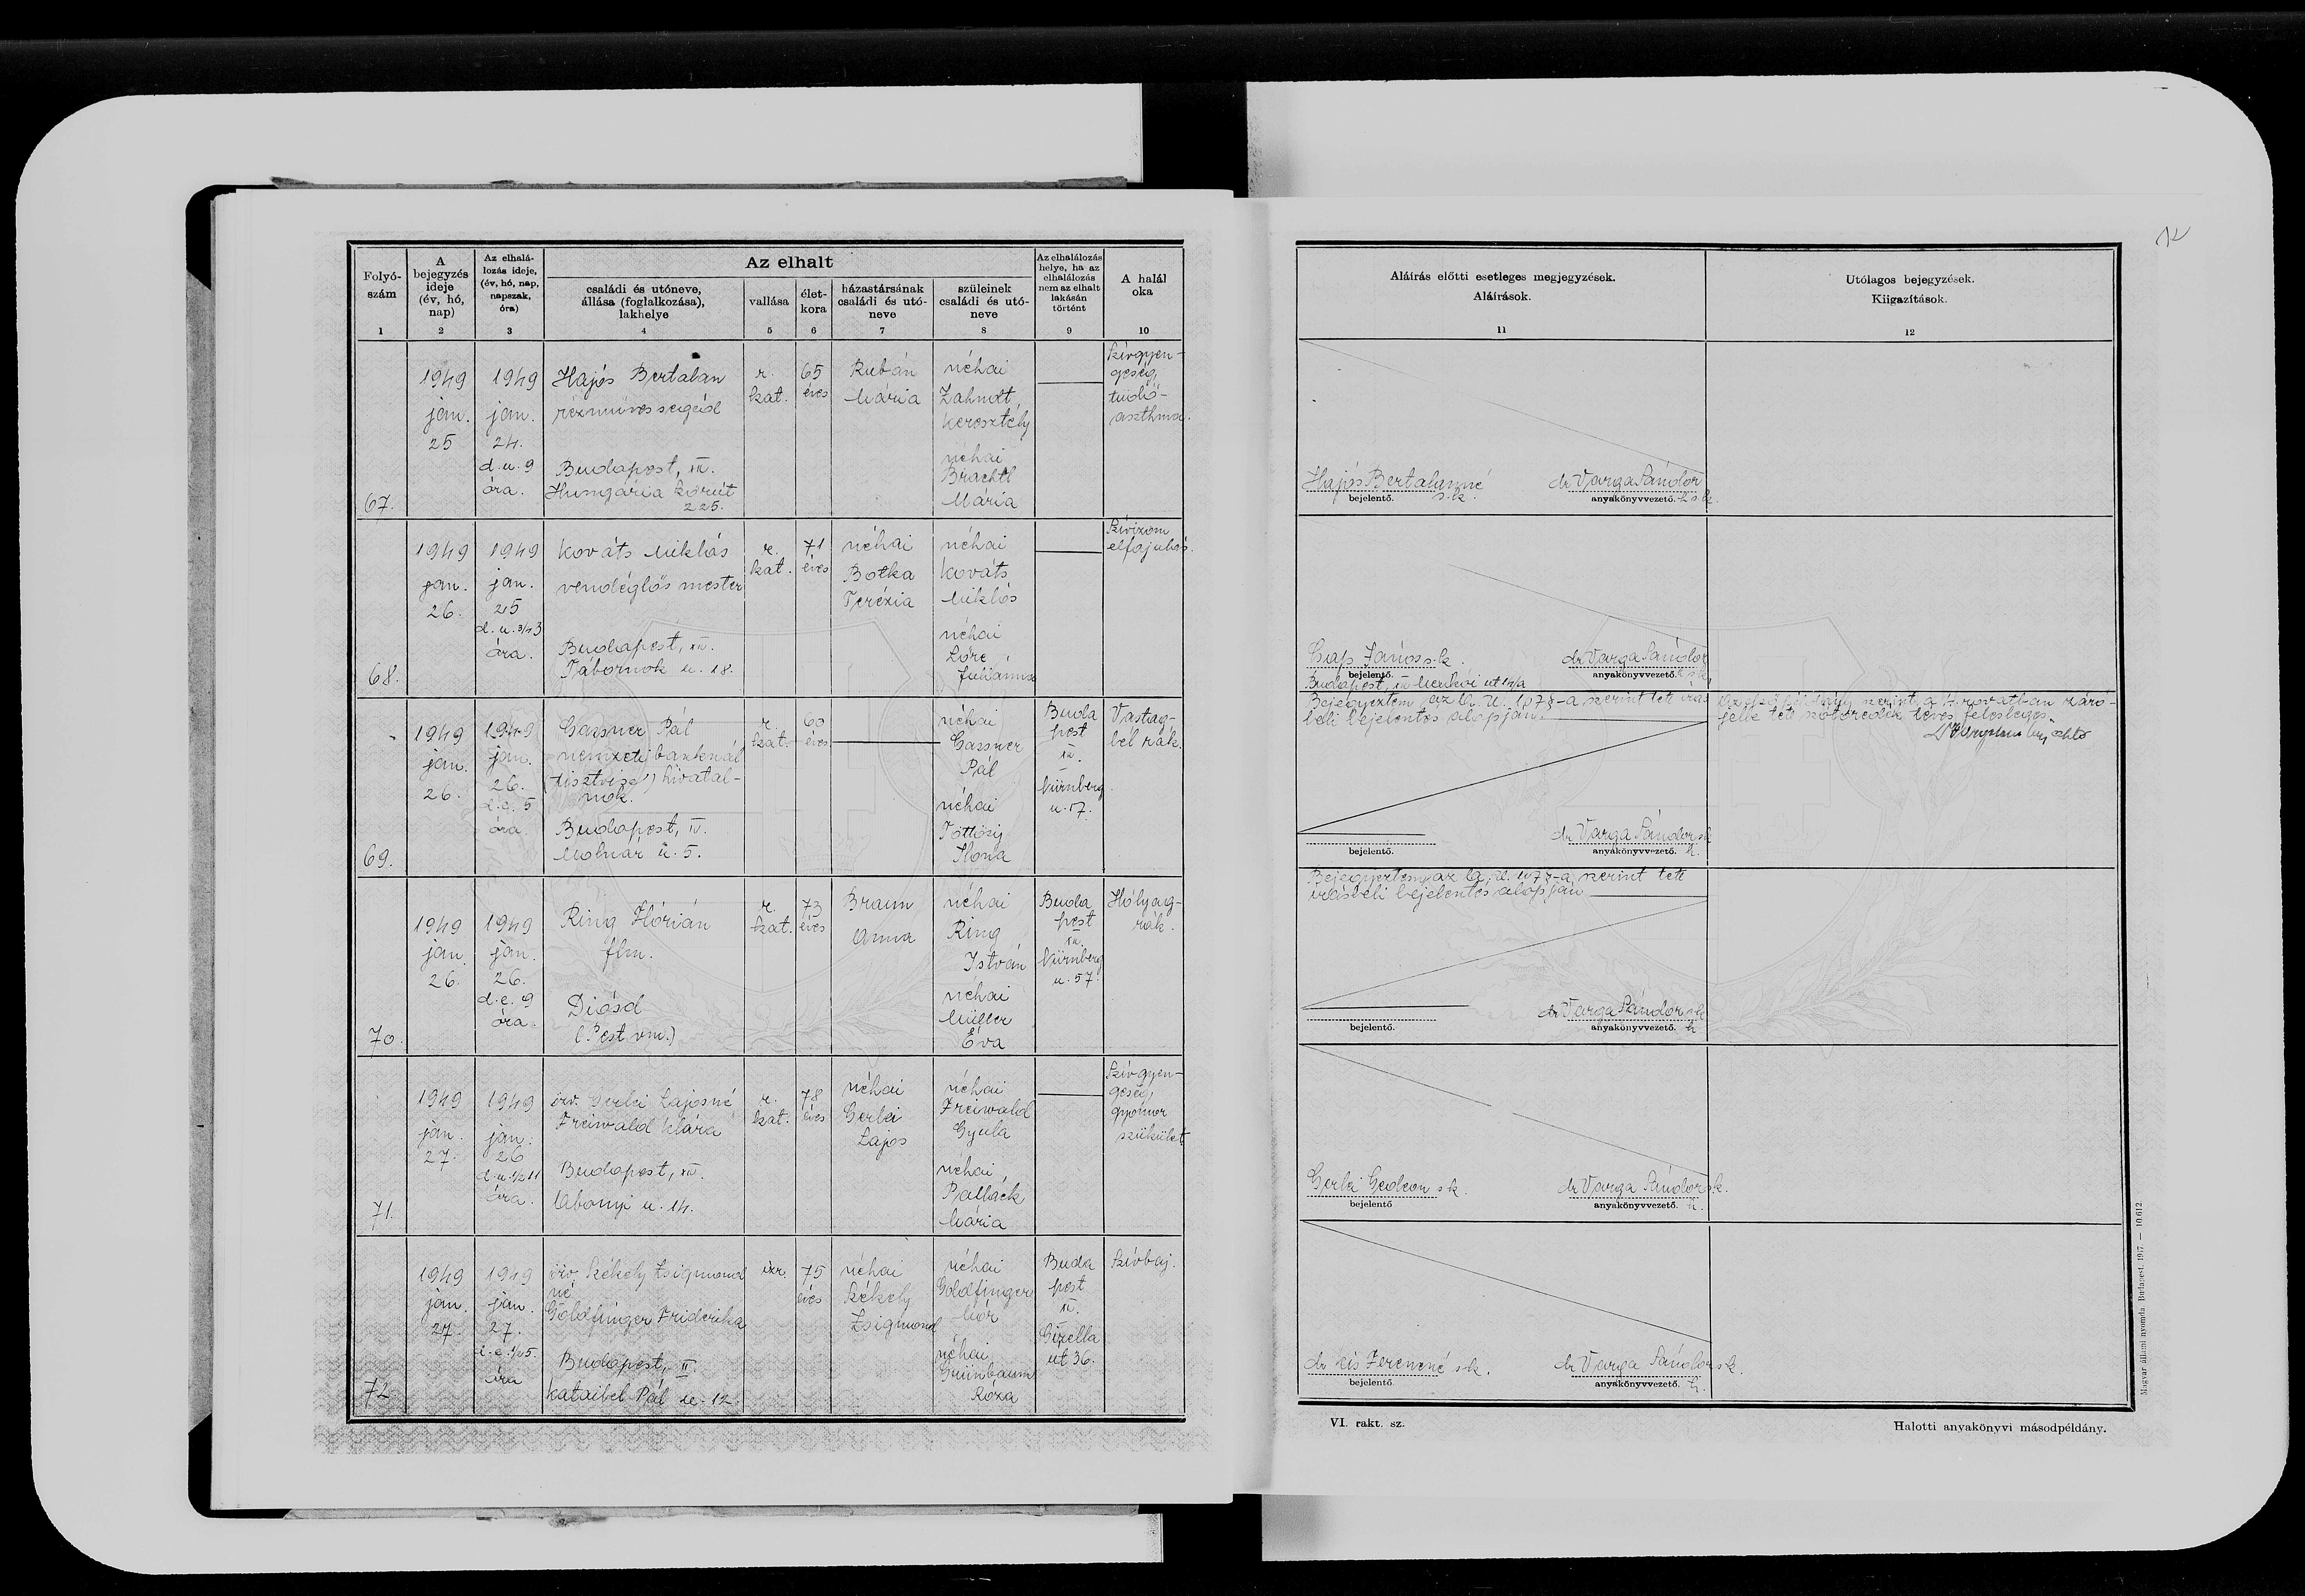 Folyó-
szám
1
A
bejegyzés
ideje
(év, hó,
nap)
2
Az elhalá-
lozás ideje,
(év, hó, nap,
napszak,
óra)
3
Az elhalt
családi és utóneve,
állása (foglalkozása),
lakhelye
4
vallása
5
élet-
kora
6
házastársának
családi és utó-
neve
7
szüleinek
családi és utó-
neve
8
Az elhalálozás
helye, ha az
elhalálozás
nem az elhalt
lakásán
történt
9
A halál
oka
10
67.
1949
jan.
25
1949
jan.
24.
d.u. 9
óra.
Hajós Bertalan
rézműves segéd
Budapest, XIV.
Hungária körút
225.
r.
kat.
65
éves
Rubán
Mária
néhai
Zahndt
Keresztély
néhai
Brachtl
Mária
Szívgyen-
geség,
tüdő-
aszthma.
68.
1949
jan.
26.
1949
jan.
25
d.u. 3/4 3
óra.
Kováts Miklós
vendéglős mester
Budapest, XIV.
Tábornok u. 18.
r.
kat.
71
éves
néhai
Botka
Terézia
néhai
Kováts
Miklós
néhai
Lőre
Juliánna
Szívizom
elfajulás.
69.
1949
jan.
26.
1949
jan.
26.
d.e. 5
óra.
Gassner Pál
nemzeti banknál
(tisztvise') hivatal-
nok.
Budapest, IV.
Molnár u. 5.
r.
kat.
60
éves
néhai
Gassner
Pál
néhai
Töttösy
Ilona
Buda
pest
XIV.
Nürnberg
u. 57.
Vastag-
bél rák.
70.
1949
jan.
26.
1949
jan.
26.
d.e. 9
óra.
Ring Flórián
flm.
Diósd
(Pest vm.)
r.
kat.
73
éves
Braun
Anna
néhai
Ring
István
néhai
Müller
Éva
Buda
pest
XIV.
Nürnberg
u. 57.
Hólyag-
rák.
71.
1949
jan.
27.
1949
jan.
26
d.u. 1/2 11
óra.
özv. Gerlei Lajosné
Freiwald Klára
Budapest, XIV.
Abonyi u. 14.
r.
kat.
78
éves
néhai
Gerlei
Lajos
néhai
Freiwald
Gyula
néhai
Pallack
Mária
Szívgyen-
geség,
gyomor
szűkület
72.
1949
jan.
27.
1949
jan.
27.
d.e. 1/2 5.
óra
özv. Székely Zsigmond
né
Goldfinger Friderika
Budapest, II.
Kataibel Pál u. 12
izr.
75
éves
néhai
Székely
Zsigmond
néhai
Goldfinger
Mór
néhai
Grünbaum
Róza
Buda
pest
XIV.
Gizella
ut 36.
Szívbaj.
Aláírás előtti esetleges megjegyzések.
Aláírások.
11
Utólagos bejegyzések.
Kiigazítások.
12
Hajós Bertalanné
s.k.
bejelentő.
dr Varga Sándor
anyakönyvvezető. h s.k.
Csap János s.k.
bejelentő.
dr Varga Sándor
anyakönyvvezető. h s.k.
Bejegyeztem az A. U. 107 §-a szerint tett írás
beli bejelentés alapján.
jelbe tett szótöredék téves, felesleges.
bejelentő.
dr Varga Sándor sk
anyakönyvvezető. h.
Bejegyeztem az A. U. 107 §-a szerint tett
írásbeli bejelentés alapján
bejelentő.
dr Varga Sándor sk
anyakönyvvezető. h
Gerlei Gedeon sk.
bejelentő
dr Varga Sándor sk.
anyakönyvvezető. h.
dr Kis Ferencné sk.
bejelentő.
dr Varga Sándor sk.
anyakönyvvezető. h.
VI. rakt. sz.
Halotti anyakönyvi másodpéldány.
Magyar állami nyomda. Budapest. 1947. — 10.612